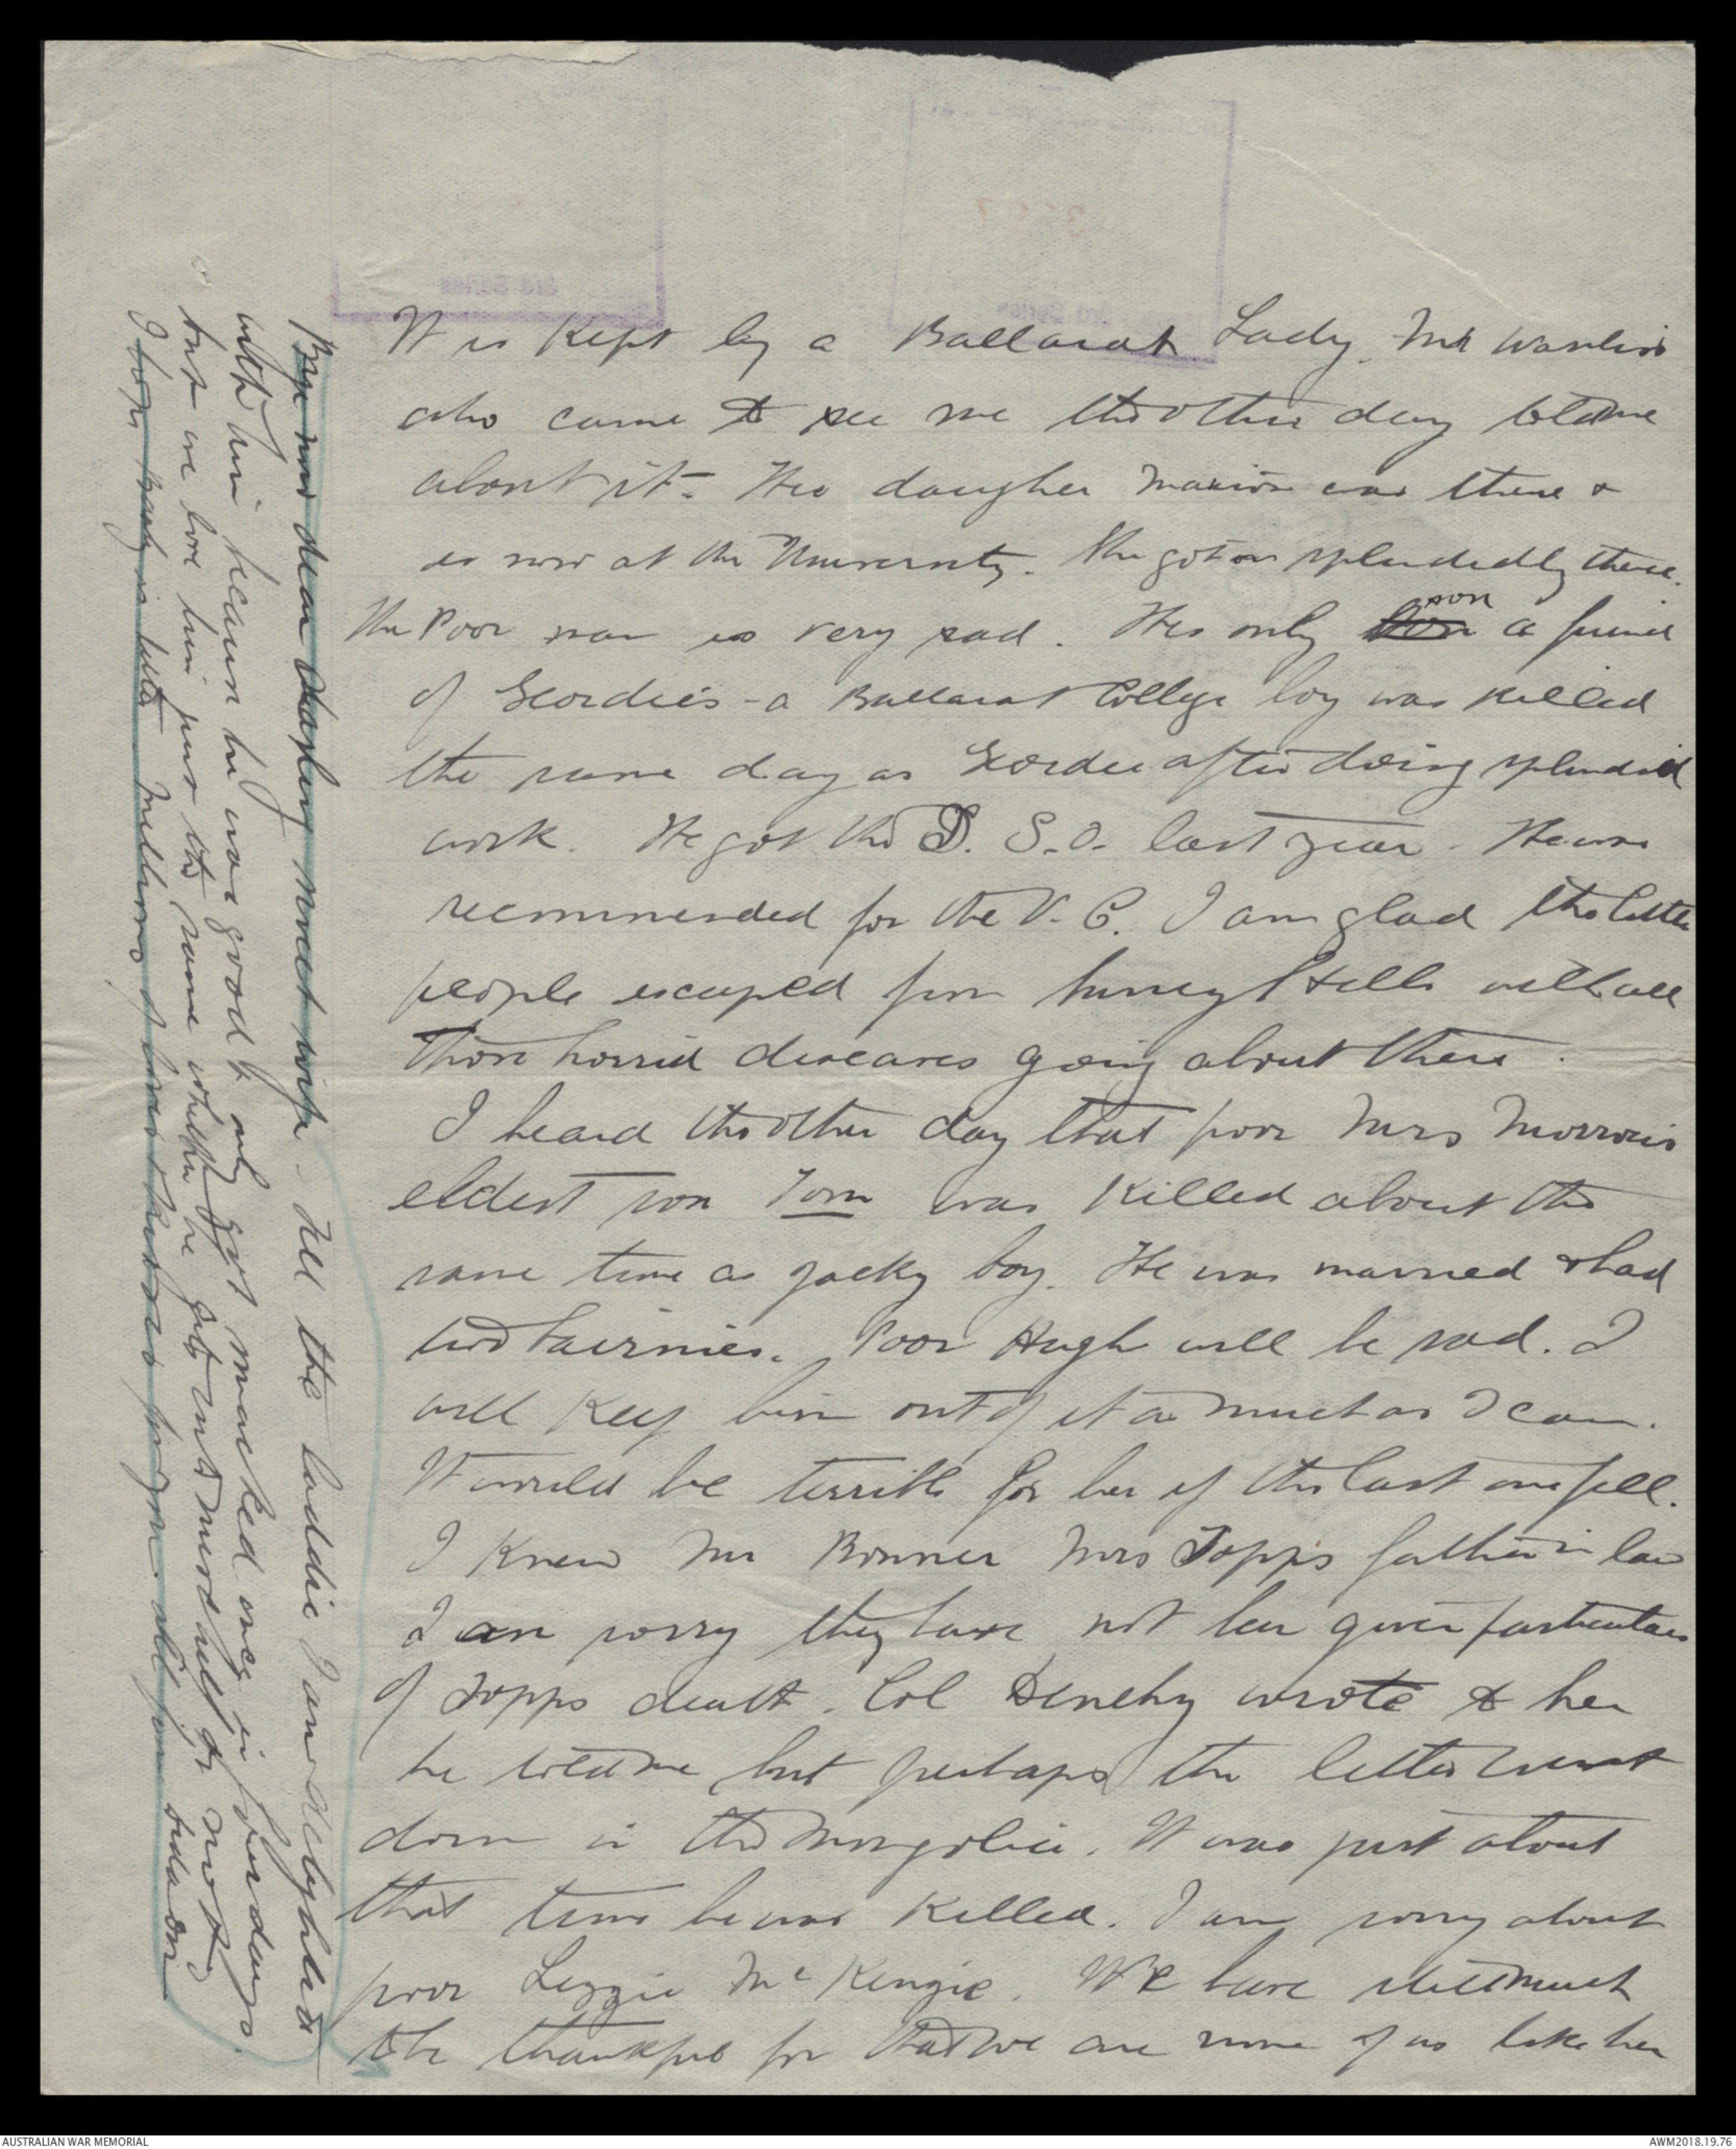 It is kept by a Ballarat Lady. Mr Wanliss
who came to see me the other day told me
about it. His daughter Marion was there &
is now at the University. She got on splendidly there.
The Poor man is very sad. His only son a friend
of Geordie's - a Ballarat College boy was killed
the same day as Geordie after doing splendid
work. He got the D.S.O. last year. He was
recommended for the V.C. I am glad the little
people escaped from Surrey Hills with all
those horrid diseases going about there.
I heard the other day that poor Mrs Morrow's
eldest son Tom was killed about the
same time as Jacky boy. He was married & had
two bairnies. Poor Hugh will be sad. I
will keep him out of it as much as I can.
It would be terrible for her if the last one fell.
I knew Mr Bonner Mrs Topp's father in law
I am sorry they have not been given particulars
of Topps death. Col Denehy wrote to her
he told me but perhaps the letter went
down in the Mongolia. It was just about
that time he was killed. I am sorry about
poor Lizzie McKenzie. We have still much
to be thankful for that we are none of us like her
Bye now dear darling sweet wife. Tell the laddie I am delighted
with him hearing he was good & only got marked once in four days.
but we love him just the same whether he gets into mischief or not.
I hope Baby is better
3rd Series
3rd Series
AUSTRALIAN WAR MEMORIAL
AWM2018.19.76